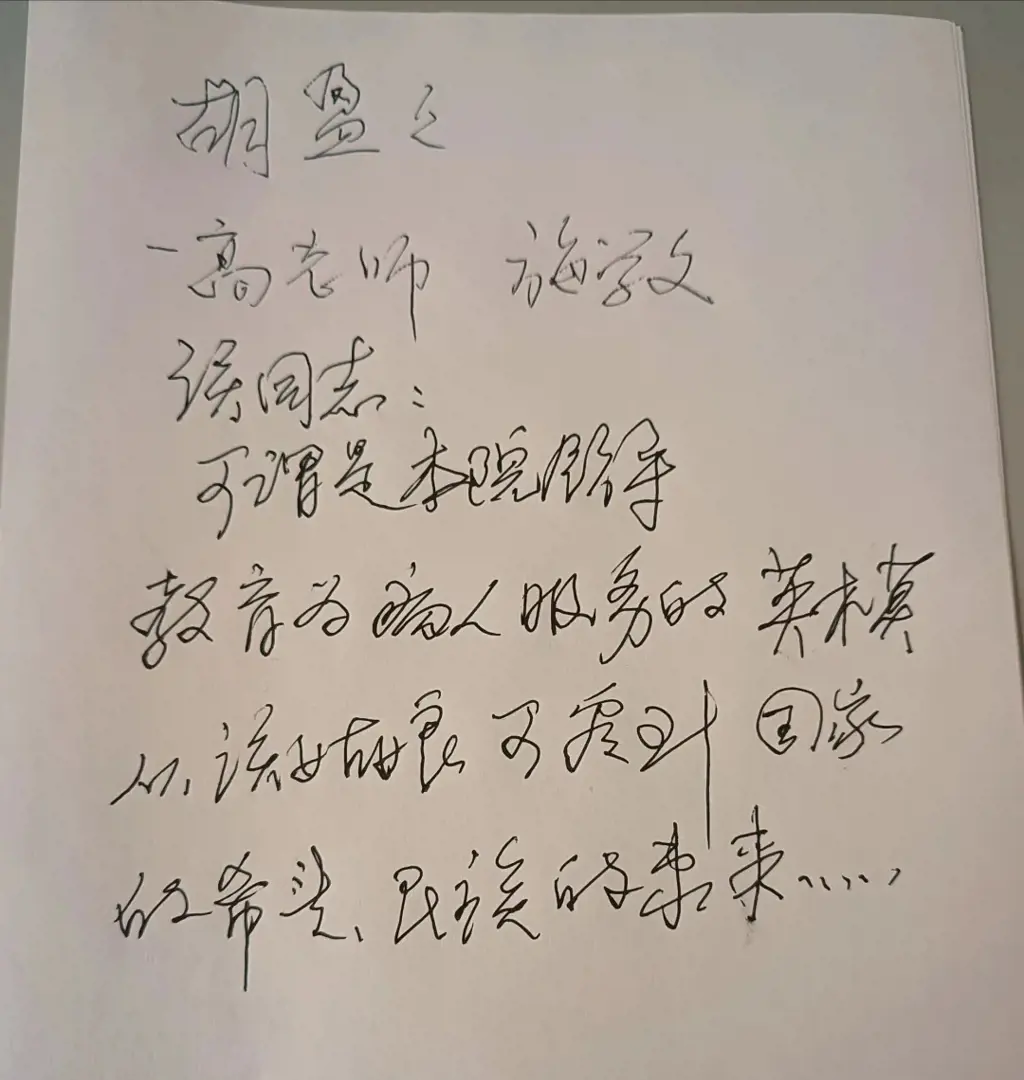 胡盈之
一高老师 施学文
该同志:
可谓是本院
教育为病人服务的英模
从该姑娘可看到国家
的希望、民族的未来……